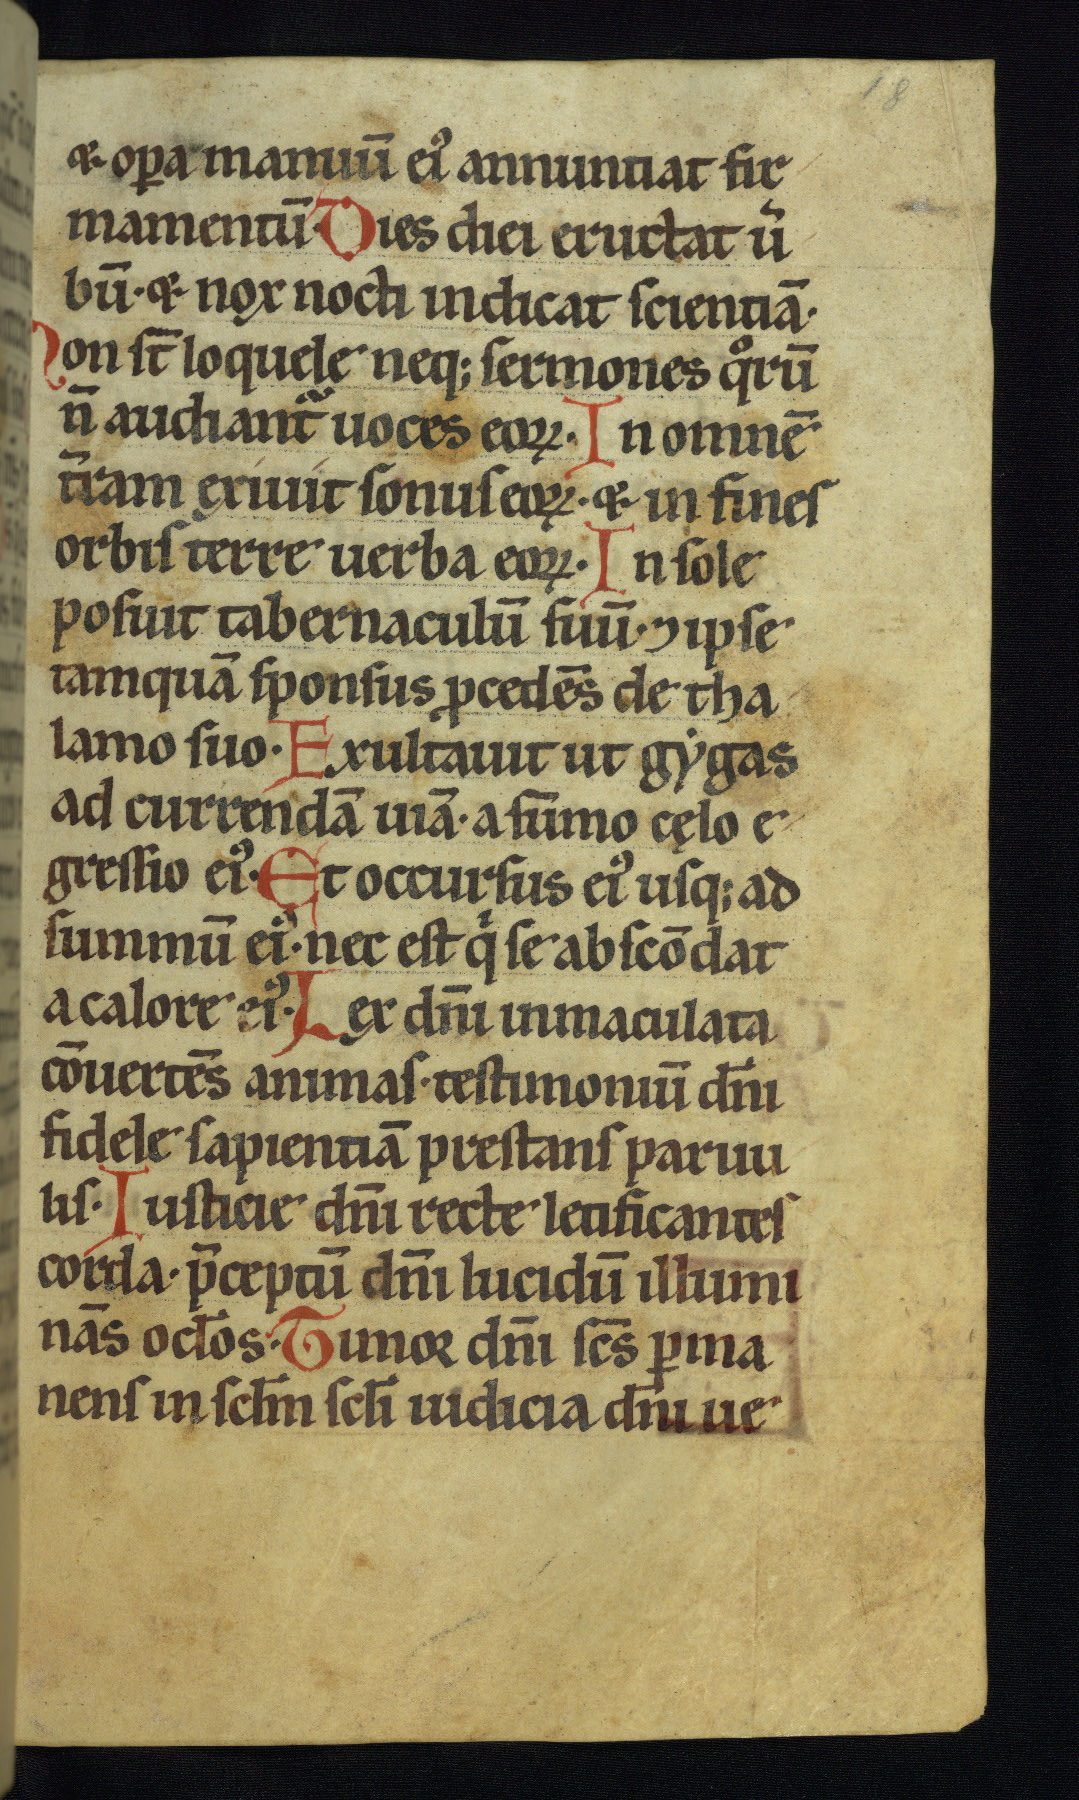 18
⁊ oꝑa manuū eiꝰ annuntiat fir
mamentū· Dies diei eructat ū
bū· ⁊ nox nocti indicat scientiā·
Non st̄ loquele neq; sermones qͦrū
n̄ audiant᷑ uoces eoꝝ· In omnē
t̄ram exiuit sonus eoꝝ· ⁊ in fines
orbis terre uerba eoꝝ· In sole
posuit tabernaculū suū· ⁊ ipse
tamquā sponsus ꝓcedēs de tha
lamo suo· Exultauit ut gẏgas
ad currendā uiā· a sūmo cęlo e
gressio eiꝰ· Et occursus eiꝰ usq; ad
summū eiꝰ· nec est qͥ se abscōdat
a calore eiꝰ· Lex dn̄i inmaculata
cōuertēs animas· testimoniū dn̄i
fidele sapientiā prestans paruu
lis· Iusticie dn̄i recte letificantes
corda· p̄ceptū dn̄i lucidū illumi
nās oc̄los· Timor dn̄i sc̄s ꝑma
nens in sc̄lm sc̄li iudicia dn̄i ue